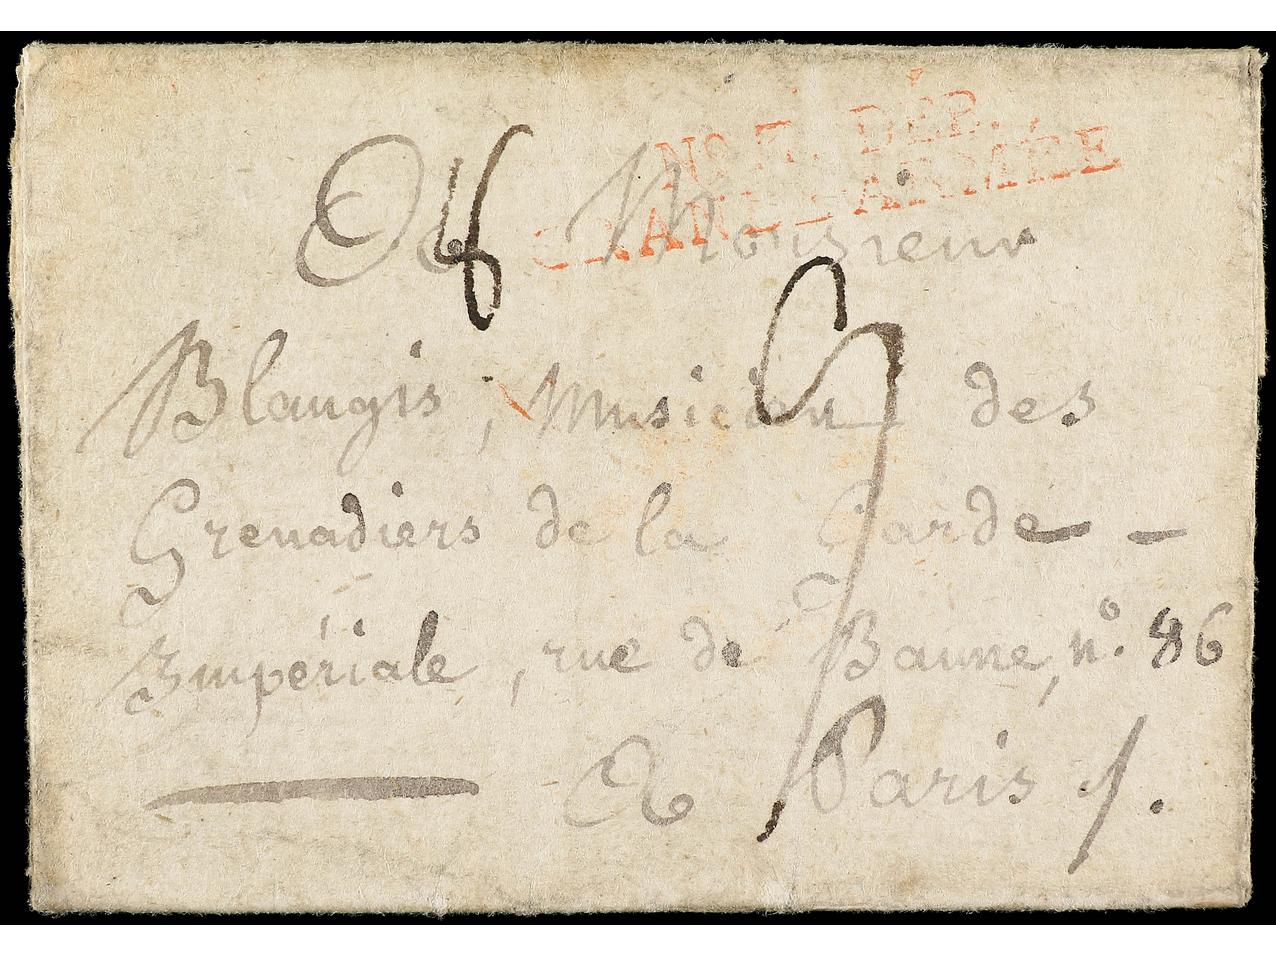 No. DÉP.
GRANDE-ARMÉE
A Monsieur
Blangis, Musicien des
Grenadiers de la Garde -
Impériale, rue de Baune, n.° 86
A Paris /.